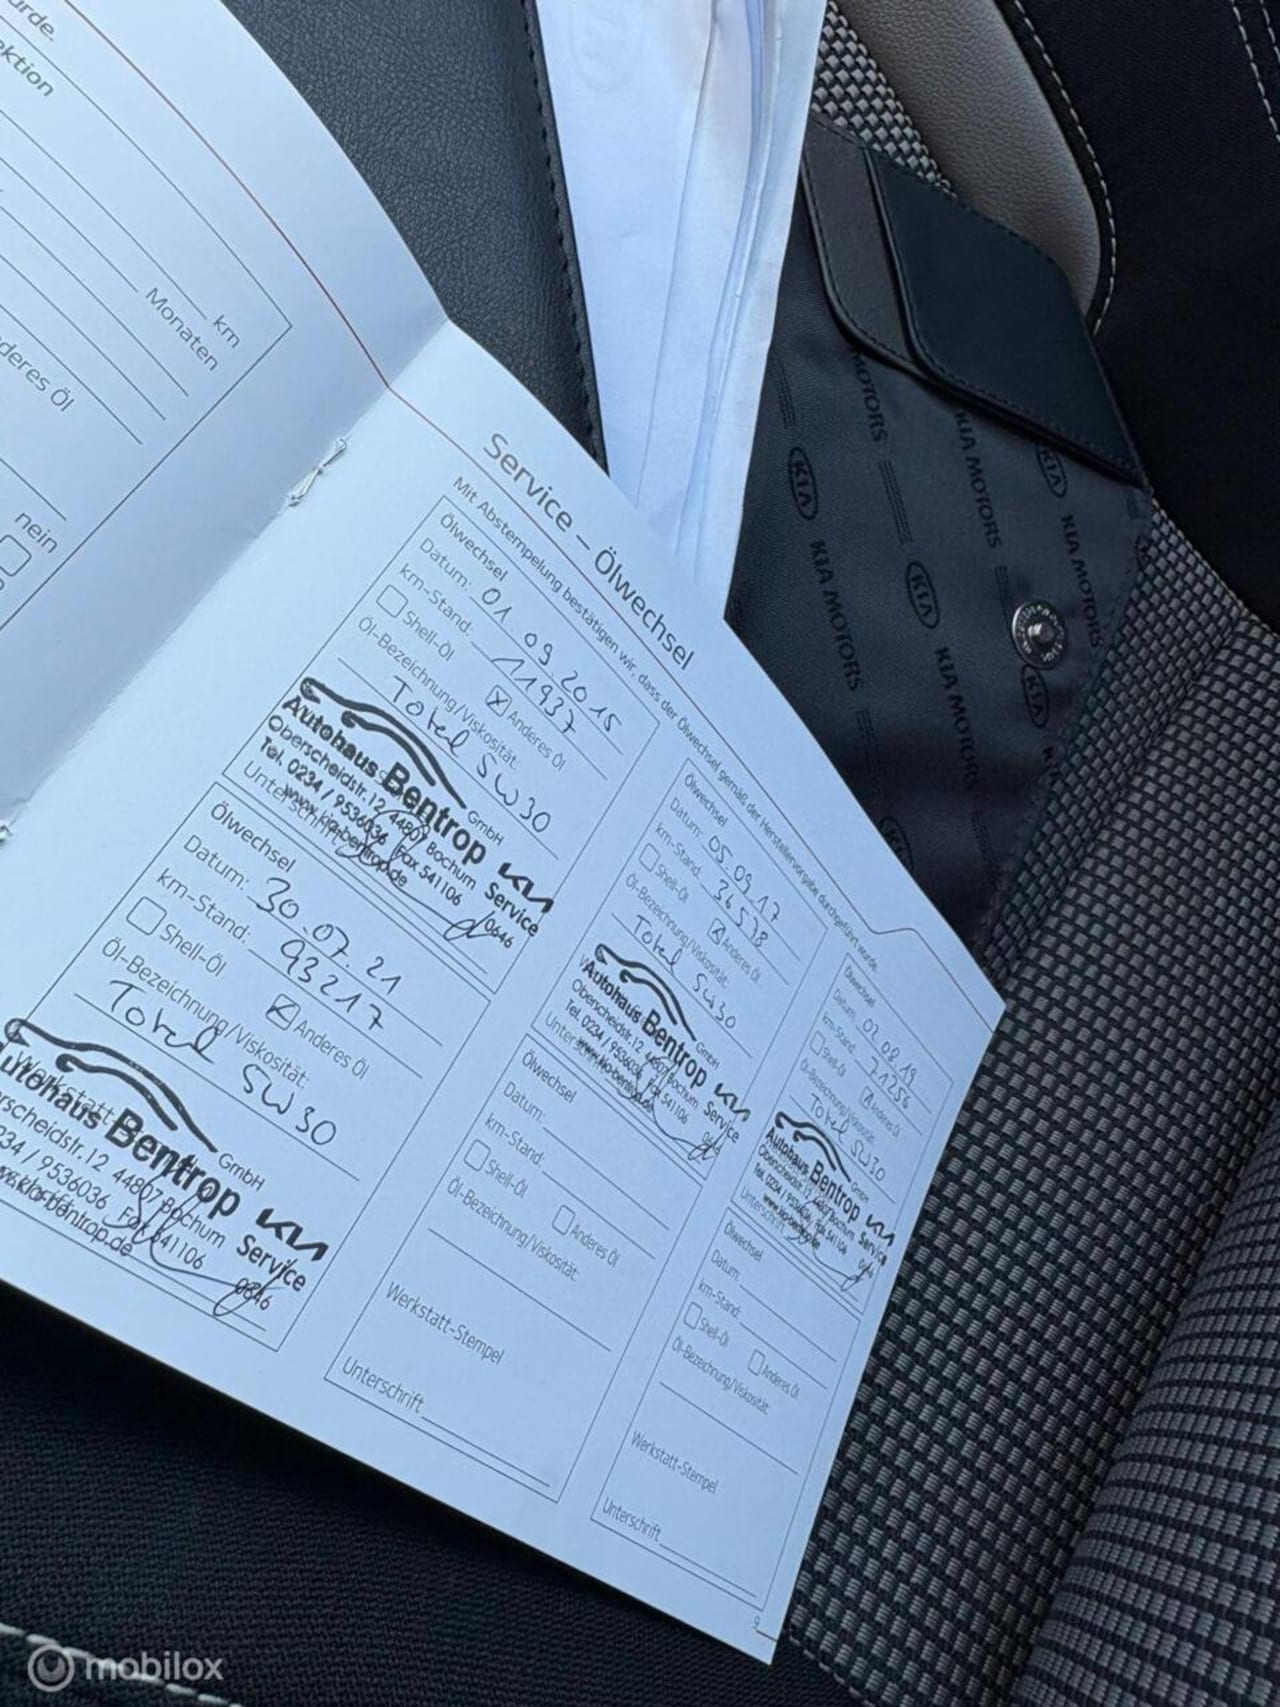 urde.
ektion
km
Monaten
deres Öl
nein
Service – Ölwechsel
Mit Abstempelung bestätigen wir, dass der Ölwechsel gemäß der Herstellervorgabe durchgeführt wurde.
Ölwechsel
Datum: 01.09.2015
km-Stand: 11937
Shell-Öl
Anderes Öl
Öl-Bezeichnung/Viskosität:
Total 5W30
Autohaus Bentrop GmbH
Oberscheidstr. 12 44807 Bochum
Tel. 0234 / 9536036 Fax 541106
www.kia-bentrop.de
KIA Service
0646
Unterschrift
Ölwechsel
Datum: 05.09.17
km-Stand: 36578
Shell-Öl
Anderes Öl
Öl-Bezeichnung/Viskosität:
Total 5W30
Autohaus Bentrop GmbH
Oberscheidstr. 12 44807 Bochum
Tel. 0234 / 9536036 Fax 541106
www.kia-bentrop.de
KIA Service
Ölwechsel
Datum: 02.08.19
km-Stand: 71256
Shell-Öl
Anderes Öl
Öl-Bezeichnung/Viskosität:
Total 5W30
Autohaus Bentrop GmbH
Oberscheidstr. 12 44807 Bochum
Tel. 0234 / 9536036 Fax 541106
www.kia-bentrop.de
KIA Service
Unterschrift
Ölwechsel
Datum: 30.07.21
km-Stand: 93217
Shell-Öl
Anderes Öl
Öl-Bezeichnung/Viskosität:
Total 5W30
Werkstatt
utohaus Bentrop GmbH
erscheidstr. 12 44807 Bochum
234 / 9536036 Fax 541106
bentrop.de
KIA Service
0646
Ölwechsel
Datum:
km-Stand:
Shell-Öl
Anderes Öl
Öl-Bezeichnung/Viskosität:
Werkstatt-Stempel
Unterschrift
Ölwechsel
Datum:
km-Stand:
Shell-Öl
Anderes Öl
Öl-Bezeichnung/Viskosität:
Werkstatt-Stempel
Unterschrift
9
MOTORS
KIA KIA MOTORS
KIA MOTORS KIA
KIA MOTORS KIA
KIA MOTORS
mobilox